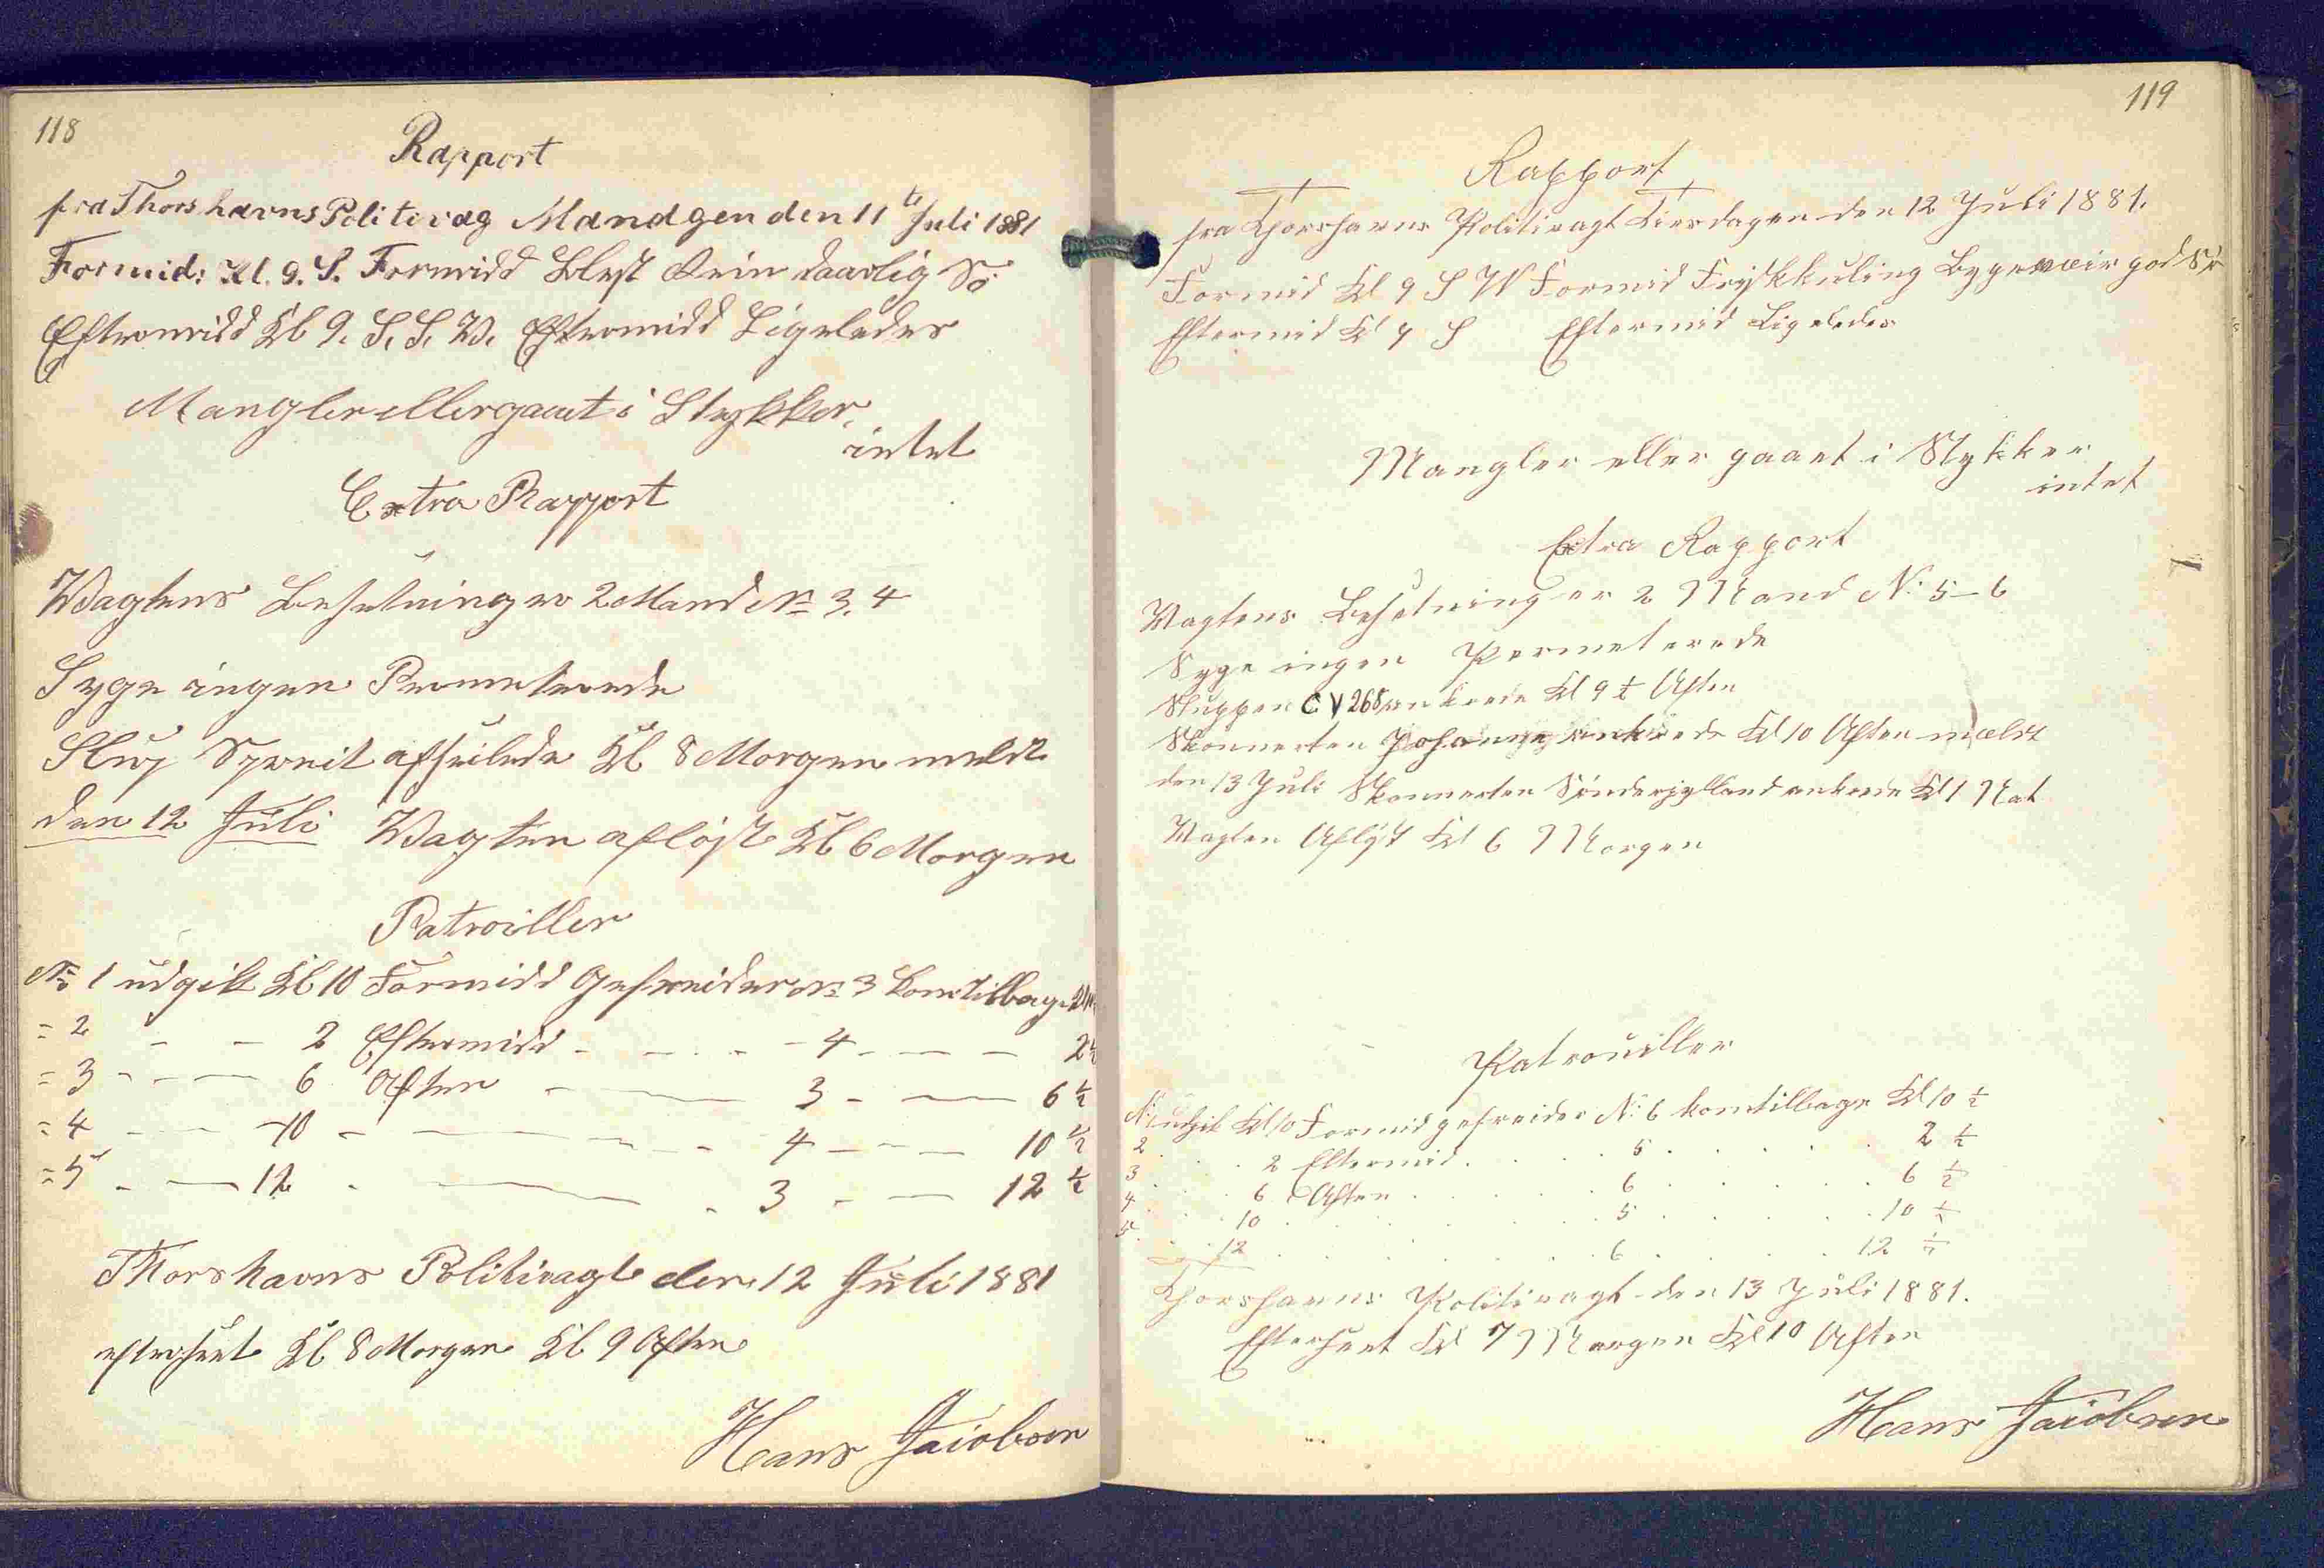 118
Rapport
fra Thorshavns Politivag Mandgen den 11te Juli 1881
Formid: Kl. 9. S. Formidd Blest Rein daarlig Sö
Eftromidd Kl 9. S. S. W. Eftermidd Ligeledes
Mangler eller gaaet i Stykker,
intet
Extra Rapport
Wagtens Besetning er 2 Mand No 3. 4
Syge ingen Permeterede
Slup afseilede Kl 8 Morgen meldt
den 12 Juli Wagten aflöst Kl 6 Morgen
Patroiller
No 1 udgik Kl 10 Formidd Gefreider No 3 kom tilbage
= 2 - - 2 Eftermidd - - - - 4 - - - 2½
= 3 - - - 6 Aften - - 3 - - 6½
= 4 - - 10 - - - - 4 - - - 10½
= 5 - - 12 - - - 3 - - 12½
Thorshavns Politivagt den 12 Juli 1881
efterseet Kl 8 Morgen Kl 9 Aften
Hans Jacobsen
119
Rapport
fra Thorshavns Politivagt Tirsdagen den 12 Juli 1881.
Formid Kl 9 S W Formid Friskkuling Bygeveir god Sö
Eftermid Kl 4 S Eftermid Ligeledes
Mangler eller gaaet i Stykker
intet
Extra Rapport
Wagtens Besetning er 2 Mand No 5-6
Syge ingen Permeterede
Sluppen CV 268 ankrede Kl 9½ Aften
Skonnerten Johanne ankrede Kl 10 Aften mældt
den 13 Juli Skonnerten Sönderjylland ankrede Kl 1 Nat
Wagten Aflöst Kl 6 Morgen
Patrouiller
No 1 udgik Kl 10 Formid gefreider No 6 kom tilbage Kl 10½
2 . . . 2 Eftermid . . . . 5 . . . . 2½
3 . . . 6 Aften . . . . 6 . . . . 6½
4 . . . 10 . . . . . 5 . . . . 10½
5 . . . 12 . . . . . 6 . . . . 12½
Thorshavns Politivagt den 13 Juli 1881.
Efterseet Kl 7 Morgen Kl 10 Aften
Hans Jacobsen